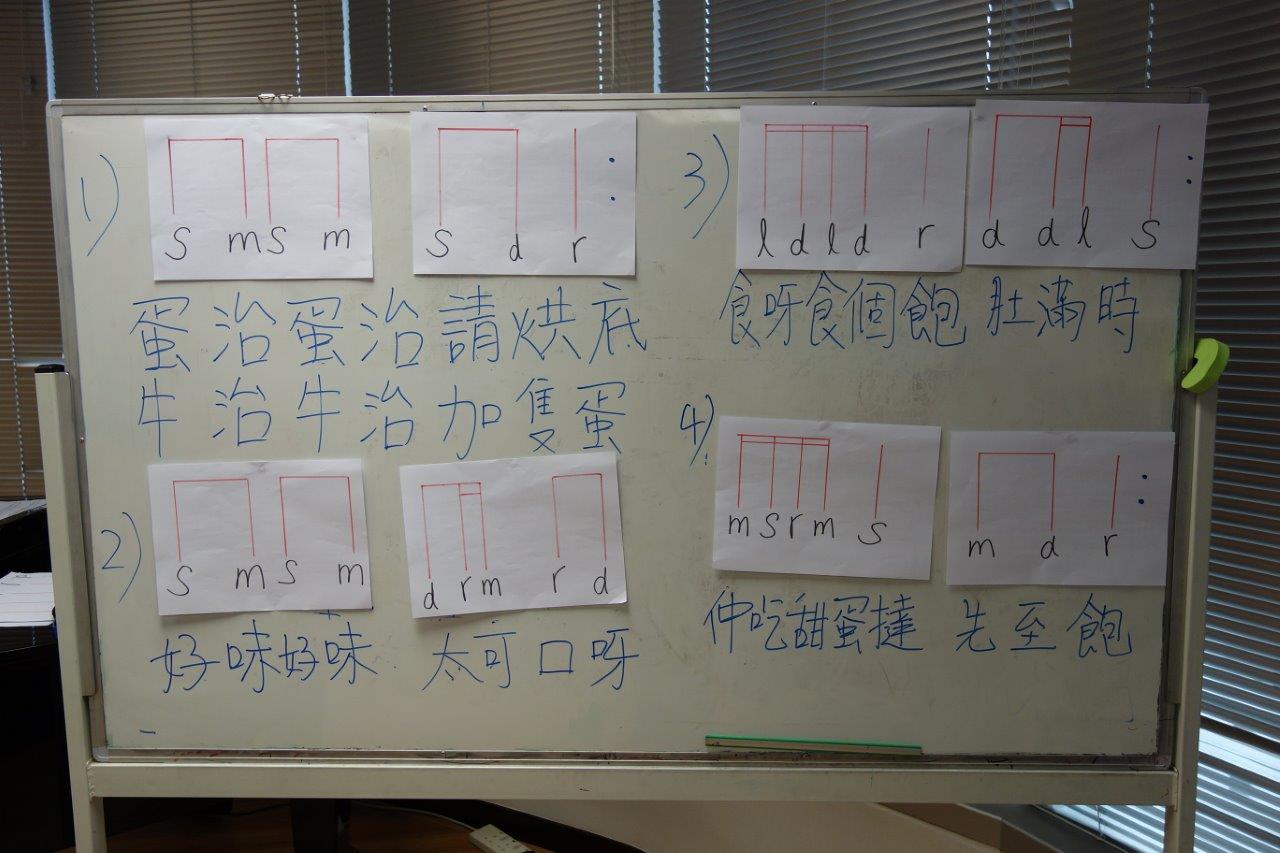 1)
s m s m s d r :
蛋治蛋治請烘底
牛治牛治加隻蛋
2)
s m s m d r m r d
好味好味 太可口呀
3)
l d l d r d d l s :
食呀食個飽 肚滿時
4)
m s r m s m d r :
仲吃甜蛋撻 先至飽